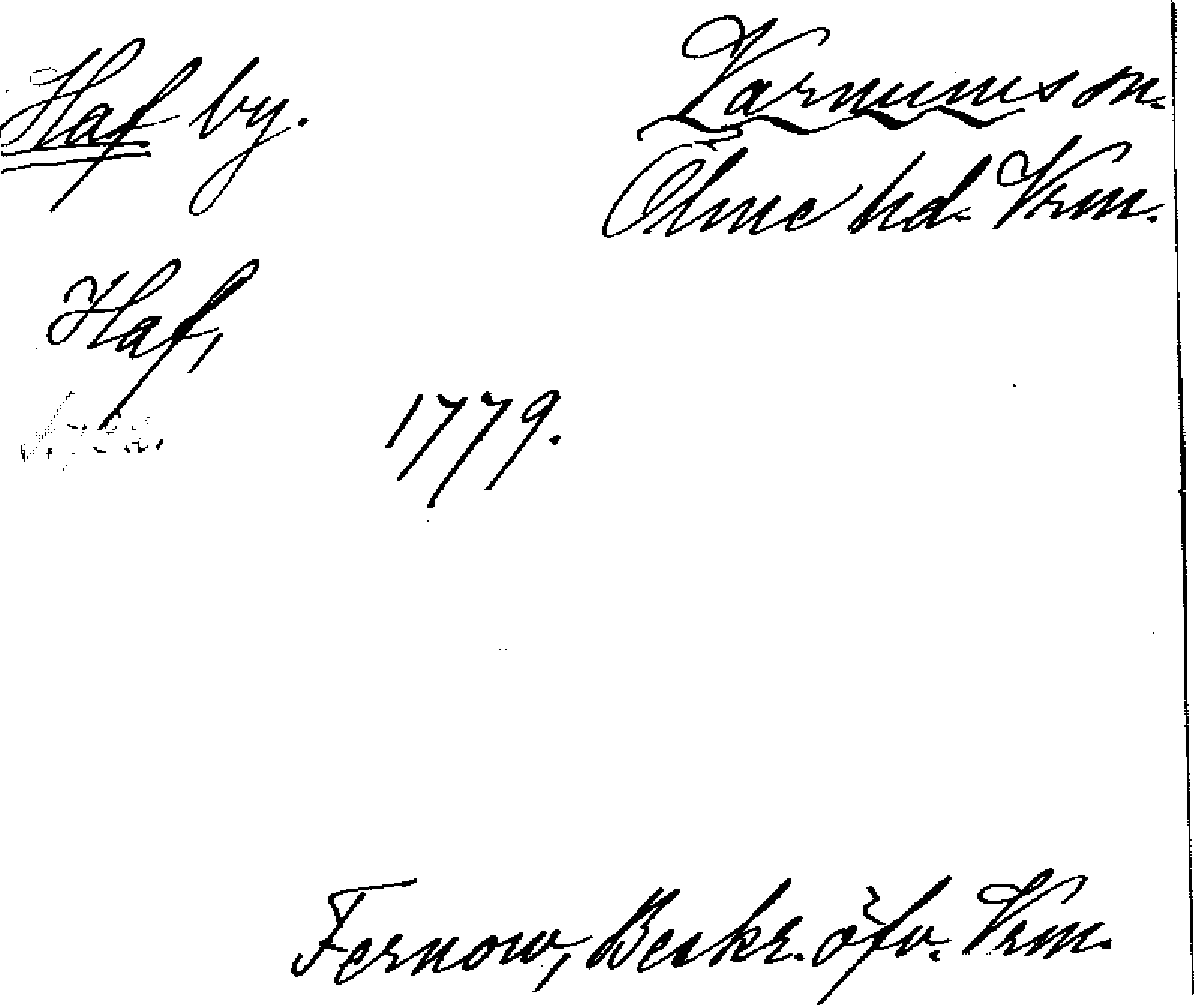 Haf by.
Varnums sn.
Ölme hd. Vrm.
Haf,
1779.
Fernow, Beskr. öfv. Vrm.